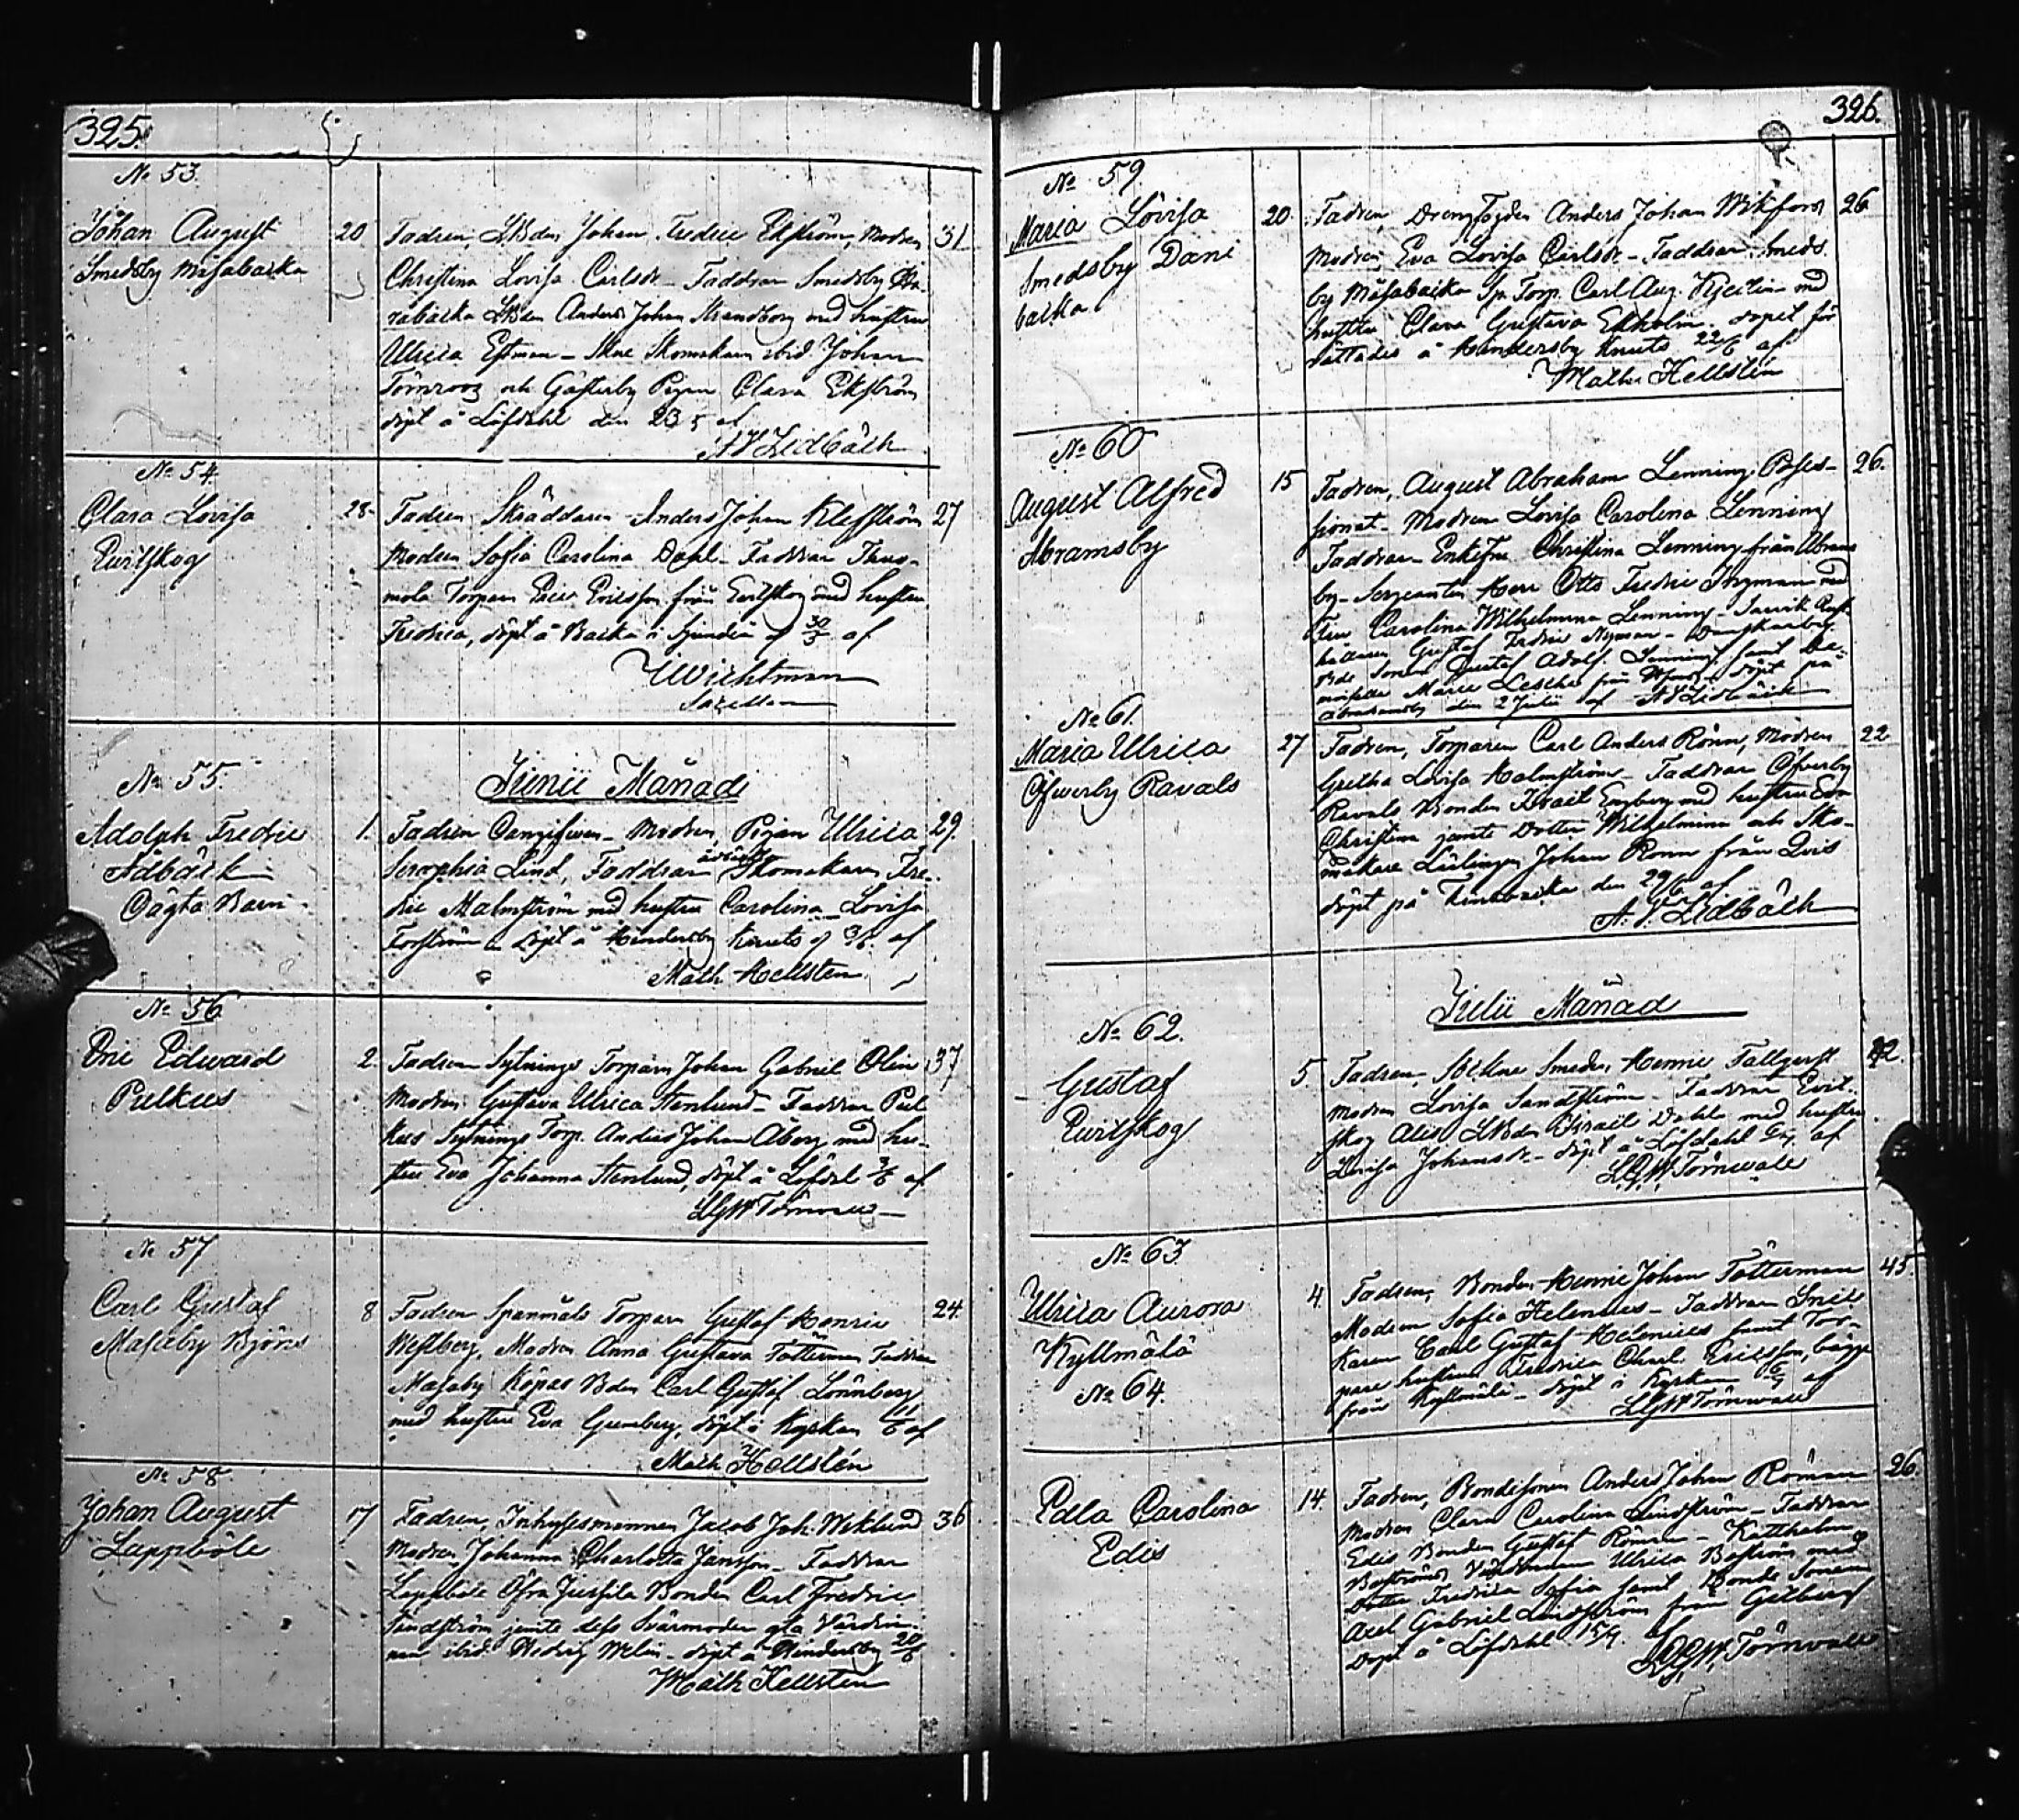 325.
No 53.
Johan August
Smedsby Måsabacka
20
Fadren, Johan Fredric Ekström, Modren
31
Christina Lovisa Carlsdr - Faddrar Smedsby
Anders Johan Strandberg med hustru
Ulrica Estman - Johan
Törnroos och Gästerby Pigan Clara Ekström
döpt å Löfdahl den 23/5 af
A V Lidbäck
No 54.
Clara Lovisa
Evitskog
28
Fadren Skräddaren Anders Johan Klefström
27
Modren Sofia Carolina Dahl - Faddrar
Torparen Eric Ericsson från Evitskog med hustru
Fredrica, döpt å Backa i Sjundeå af
Wichtman
No 55.
Junii Månad
Adolph Fredric
Adbäck
Oägta Barn
1.
Fadren Oangifven - Modren, Pigan Ulrica
29.
Seraphia Lind, Faddrar Skomakaren Fre-
dric Malmström med hustru Carolina Lovisa
Forsström - döpt å Hindersby Knuts d 3/6 af
Math Hellsten
No 56
Eric Edward
Pulkus
2.
Fadren Sytnings Torparen Johan Gabriel Olin
37
Modren Gustava Ulrica Stenlund - Faddrar Pul
kus Sytnings Torp. Anders Johan Åberg med hu-
stru Eva Johanna Stenlund, döpt å Löfdal 3/6 af
LGW Törnwall
No 57
Carl Gustaf
Masaby Björns
8
Fadren Spanmåls Torparen Gustaf Henric
24.
Westberg, Modren Anna Gustava Fötterman Faddrar
Masaby Köpas Bden Carl Gustaf Lönnberg
med hustru Eva Grenberg, döpt i Kyrkan 11/6 af
Math Hellstén
No 58
Johan August
Lappböle
17
Fadren, Inhysesmannen Jacob Joh. Weklund
36
Modren Johanna Charlotta Jansson - Faddrar
Lappböle Öfra Jussila Bonden Carl Fredric
Sandström jemte dess Svärmoder gla Värdin-
nan ibid. Hedvig Welin - döpt å Hindersby 20/6
Math Hellsten
326.
No 59
Maria Lovisa
Smedsby Dane
backa
20.
Fadren, Drengfogden Anders Johan Wikfors
26
Modren, Eva Lovisa Carlsdr - Faddrar Smeds
by Måsabacka Sp. Torp. Carl Aug. Kjellin med
hustru Clara Gustava Ekholm. dopet för
rättades å Hindersby Knuts 22/6 af
Math Hellstén
No 60
August Alfred
Abramsby
15
Fadren, August Abraham Lenning Poses-
26.
sionat - Modren Lovisa Carolina Lenning
Faddrar - Enkefru Christina Lenning från Abrams
by - Sergeanten Herr Otto Fredric Ingman med
Fru Carolina Wilhelmina Lenning -
hållaren Gustaf Fredric Nyman -
Sonen Gustaf Adolf Lenning samt De-
moiselle Marie från döpt på
Abrahamsby den 2 Julii af A V Lidbäck
No 61.
Maria Ulrica
Öfwerby Ravals
27
Fadren, Torparen Carl Anders Rönn, Modren
22
Gretha Lovisa Malmström - Faddrar Öfverby
Ravals Bonden Israel Engberg med hustru Eva
Christina jemte Dotter Wilhelmina och Sko-
makare Lärlingen Johan Rönn från Qvis
döpt på Finnbacka den 29/6 af
A. V. Lidbäck
Julii Månad
No 62.
Gustaf
Evitskog
5.
Fadren, Smeden Henric Fallqvist
42.
Modren Lovisa Sandström - Faddrar Evit-
skog Alis Israel Dahl med hustru
Lovisa Johansdr - döpt å Löfdahl af
LGW Törnwall
No 63.
Ulrica Aurora
Kyllmälä
4.
Fadren, Bonden Henric Johan Fötterman
45.
Modren Sofia Helenius - Faddrar Snic
karen Carl Gustaf Helenius samt Tor-
pare hustrun Fredrica Charl. Ericsson, bägge
från Kyllmälä - döpt i Kyrkan 6/7 af
LGW Törnwall
No 64.
Edla Carolina
Edis
14.
Fadren, Bondesonen Anders Johan Röman
26.
Modren Clara Carolina Lindström - Faddrar
Edis Bonden Gustaf Röman - Kattholm
Boströms Värdinnan Ulrica Boström med
Dotter Fredrica Sofia samt Bonde Sonen
Axel Gabriel Lindström från Getberg
Döpt å Löfdahl 15/7. af
LGW. Törnwall